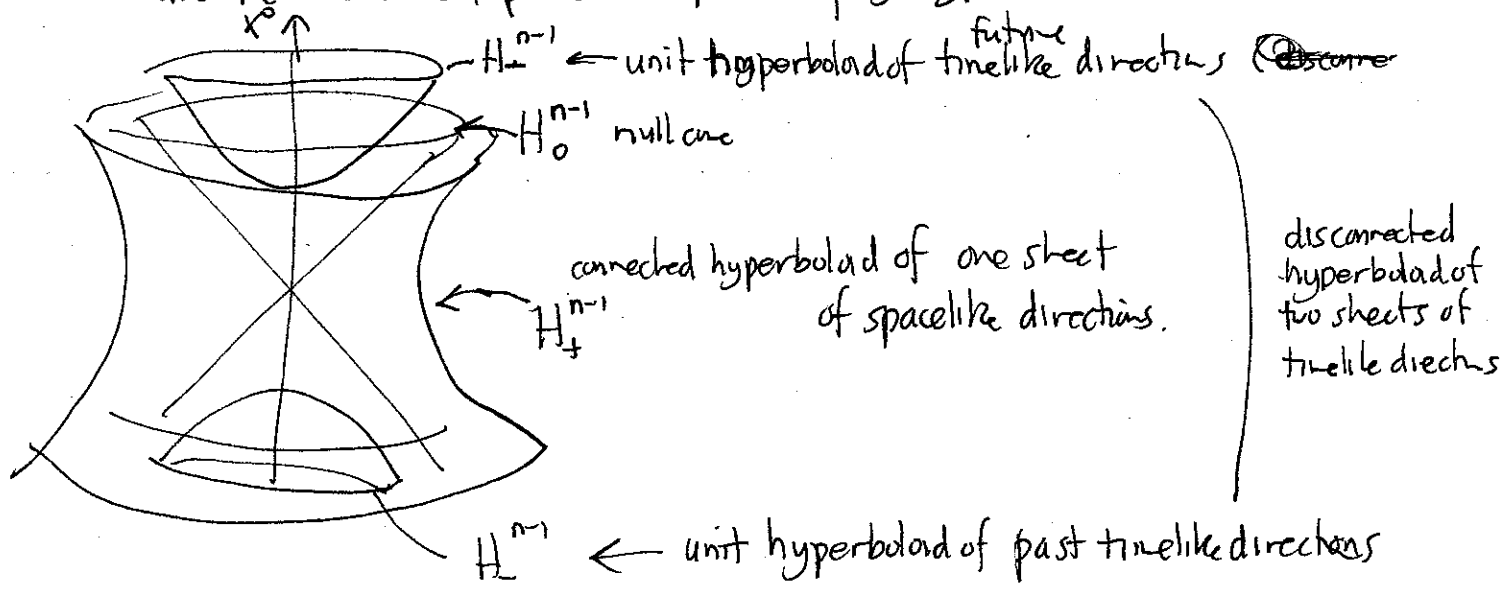 x⁰
H₋ⁿ⁻¹ ← unit hyperboloid of future timelike directions
H₀ⁿ⁻¹ null cone
connected hyperboloid of one sheet
H₊ⁿ⁻¹ of spacelike directions.
disconnected
hyperboloid of
two sheets of
timelike directions
H₋ⁿ⁻¹ ← unit hyperboloid of past timelike directions